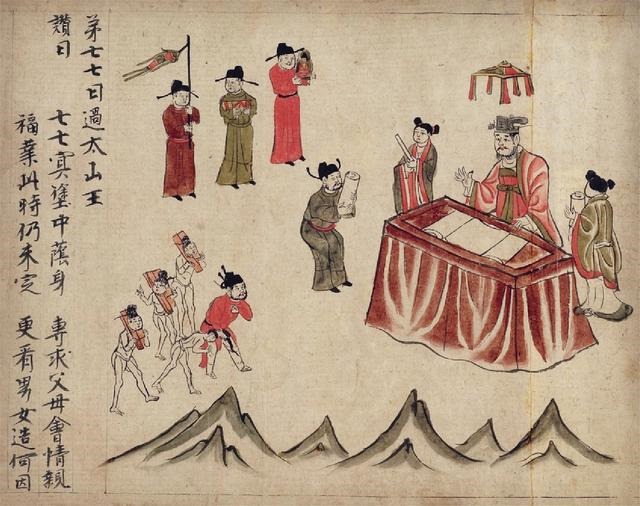 第七七日過太山王
讚曰 七七冥塗中蔭身 專求父母會情親
福業此時仍未定 更看男女造何因